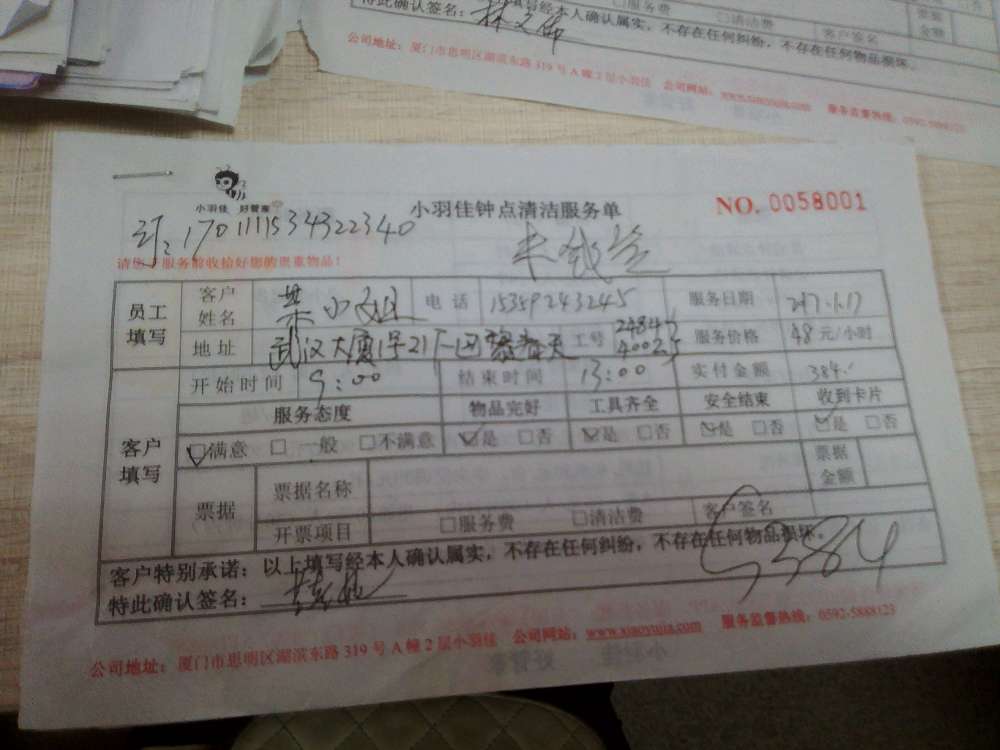 □服务费 □清洁费 票据 金额
客户签名
特此确认签名： 写经本人确认属实，不存在任何纠纷，不存在任何物品损坏。
公司地址：厦门市思明区湖滨东路 319 号 A 幢 2 层小羽佳 公司网站：www.xiaoyujia.com 服务监督热线：0592-5888123
小羽佳 好管家
小羽佳钟点清洁服务单
NO. 0058001
1701111534322340
请您于服务前收拾好您的贵重物品！
员工填写 客户姓名 小姐 电话 15359243245 服务日期 2017.1.17
地址 武汉大厦1号21 巴黎春天 工号 2484号 4002号 服务价格 48 元/小时
客户填写 开始时间 9:00 结束时间 13:00 实付金额 384.
服务态度 物品完好 工具齐全 安全结束 收到卡片
☑满意 □一般 □不满意 ☑是 □否 ☑是 □否 ☑是 □否 ☑是 □否
票据 票据名称 票据金额
开票项目 □服务费 □清洁费 客户签名
384
客户特别承诺：以上填写经本人确认属实，不存在任何纠纷，不存在任何物品损坏。
特此确认签名：
公司地址：厦门市思明区湖滨东路 319 号 A 幢 2 层小羽佳 公司网站：www.xiaoyujia.com 服务监督热线：0592-5888123